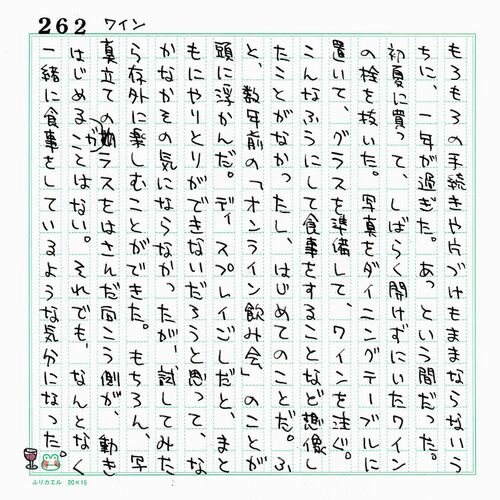 262 ワイン
もろもろの手続きや片づけもままならないう
ちに、一年が過ぎた。あっという間だった。
初夏に買って、しばらく開けずにいたワイン
の栓を抜いた。写真をダイニングテーブルに
置いて、グラスを準備して、ワインを注ぐ。
こんなふうにして食事をすることなど想像し
たことがなかったし、はじめてのことだ。ふ
と、数年前の「オンライン飲み会」のことが
頭に浮かんだ。ディスプレイごしだと、まと
もにやりとりができないだろうと思って、な
かなかその気にならなかったが、試してみた
ら存外に楽しむことができた。もちろん、写
真立てのガラスをはさんだ向こう側が、動き
はじめることはない。それでも、なんとなく
一緒に食事をしているような気分になった。
ふりカエル 20×15